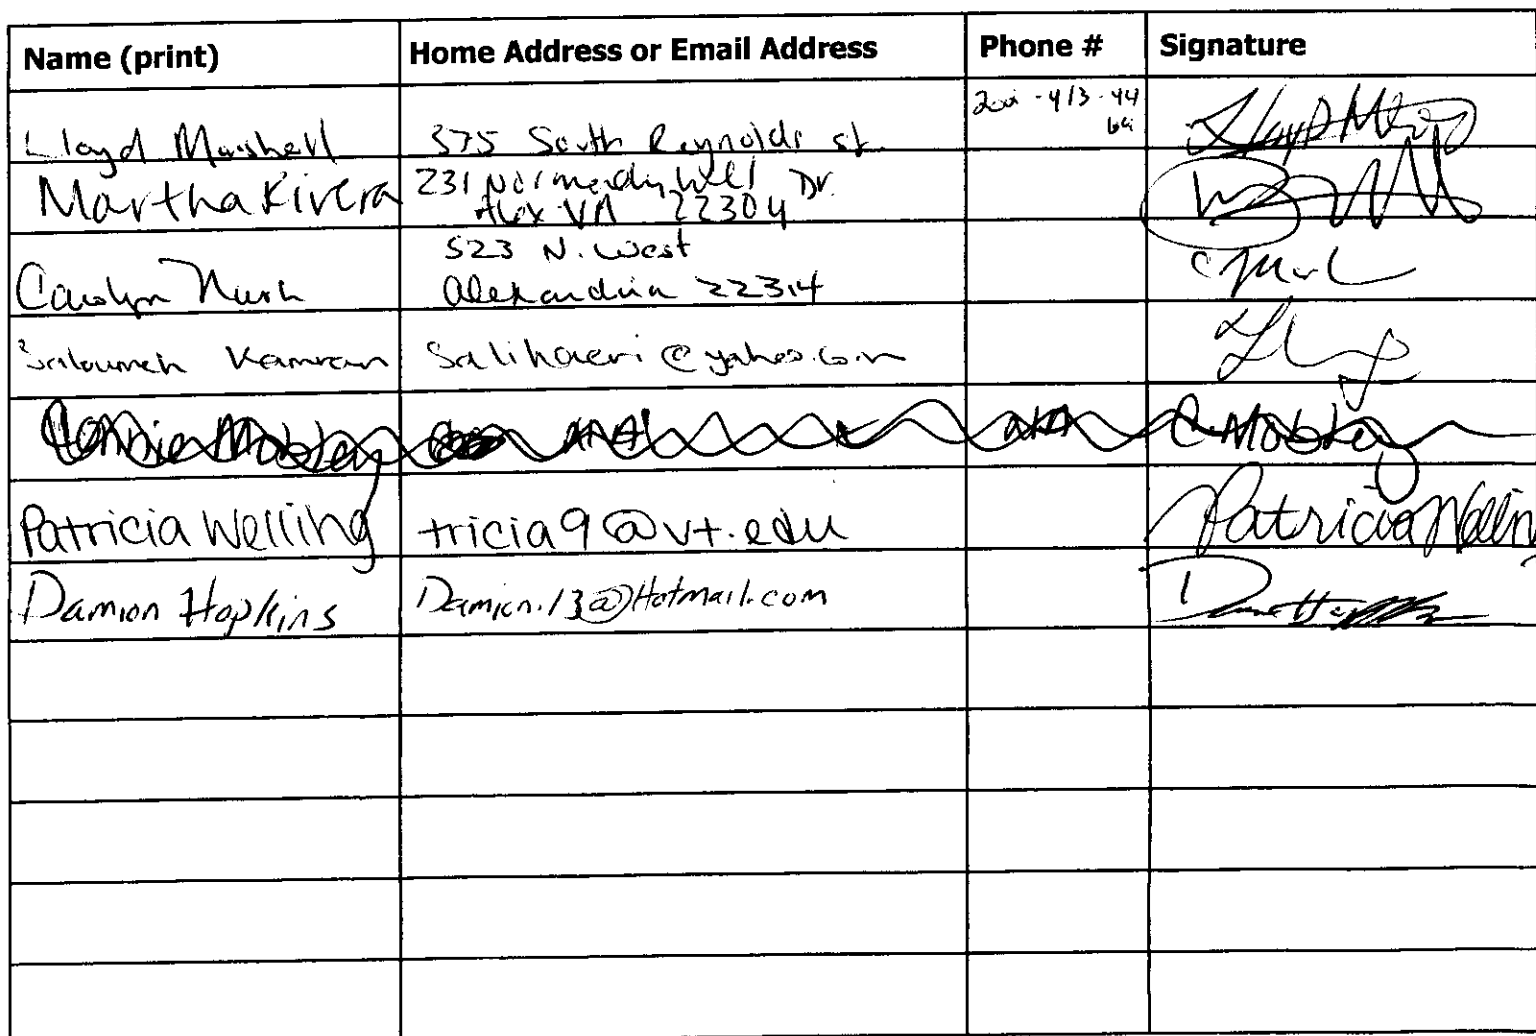 Name (print) Home Address or Email Address Phone # Signature
Lloyd Marshell 375 South Reynolds st.
Martha Rivera 231 Normandy hill Dr.
Alex VA 22304
523 N. West
Carolyn Alexandria 22314
Kamran Salihaeri@yahoo.com
Connie Mobley C. Mobley
Patricia Welling tricia9@vt.edu Patricia Welling
Damion Hopkins Damion.13@Hotmail.com